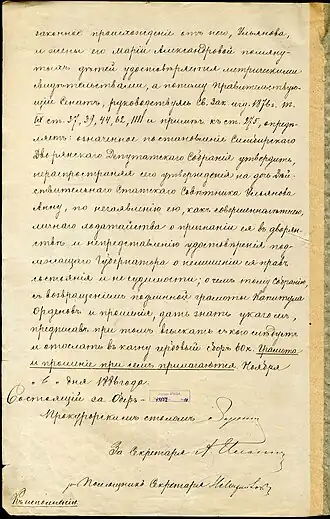 законное происхожденіе отъ него, Ульянова,
и жены его Маріи Александровой помяну-
тыхъ дѣтей удостовѣряется метрическими
свидѣтельствами, а потому Правительствую-
щій Сенатъ, руководствуясь Св. Зак. изд. 1876 г. т.
IX ст. 37, 39, 44, 62, и примѣч. къ ст. 275, опредѣ-
ляетъ: означенное постановленіе Симбирскаго
Дворянскаго Депутатскаго Собранія утвердить,
не распространяя его утвержденія на дочь Дѣй-
ствительнаго Статскаго Совѣтника Ульянова
Анну, по незаявленію ею, какъ совершеннолѣтнею,
личнаго ходатайства о признаніи ея въ дворян-
ствѣ и непредставленію удостовѣренія под-
лежащаго Губернатора о нелишеніи ея правъ
состоянія и не судимости; о чемъ тому Собранію,
съ возвращеніемъ подлинной грамоты Капитула
Орденовъ и прошенія, дать знать указомъ,
предписавъ при томъ взыскать съ кого слѣдуетъ
и отослать въ казну гербовый сборъ 60 к. Грамота
и прошеніе при семъ прилагаются Ноября
"6" дня 1886 года.
Состоящій за Оберъ-
Прокурорскимъ столомъ
За Секретаря А.
Помощникъ Секретаря
Къ исполненію